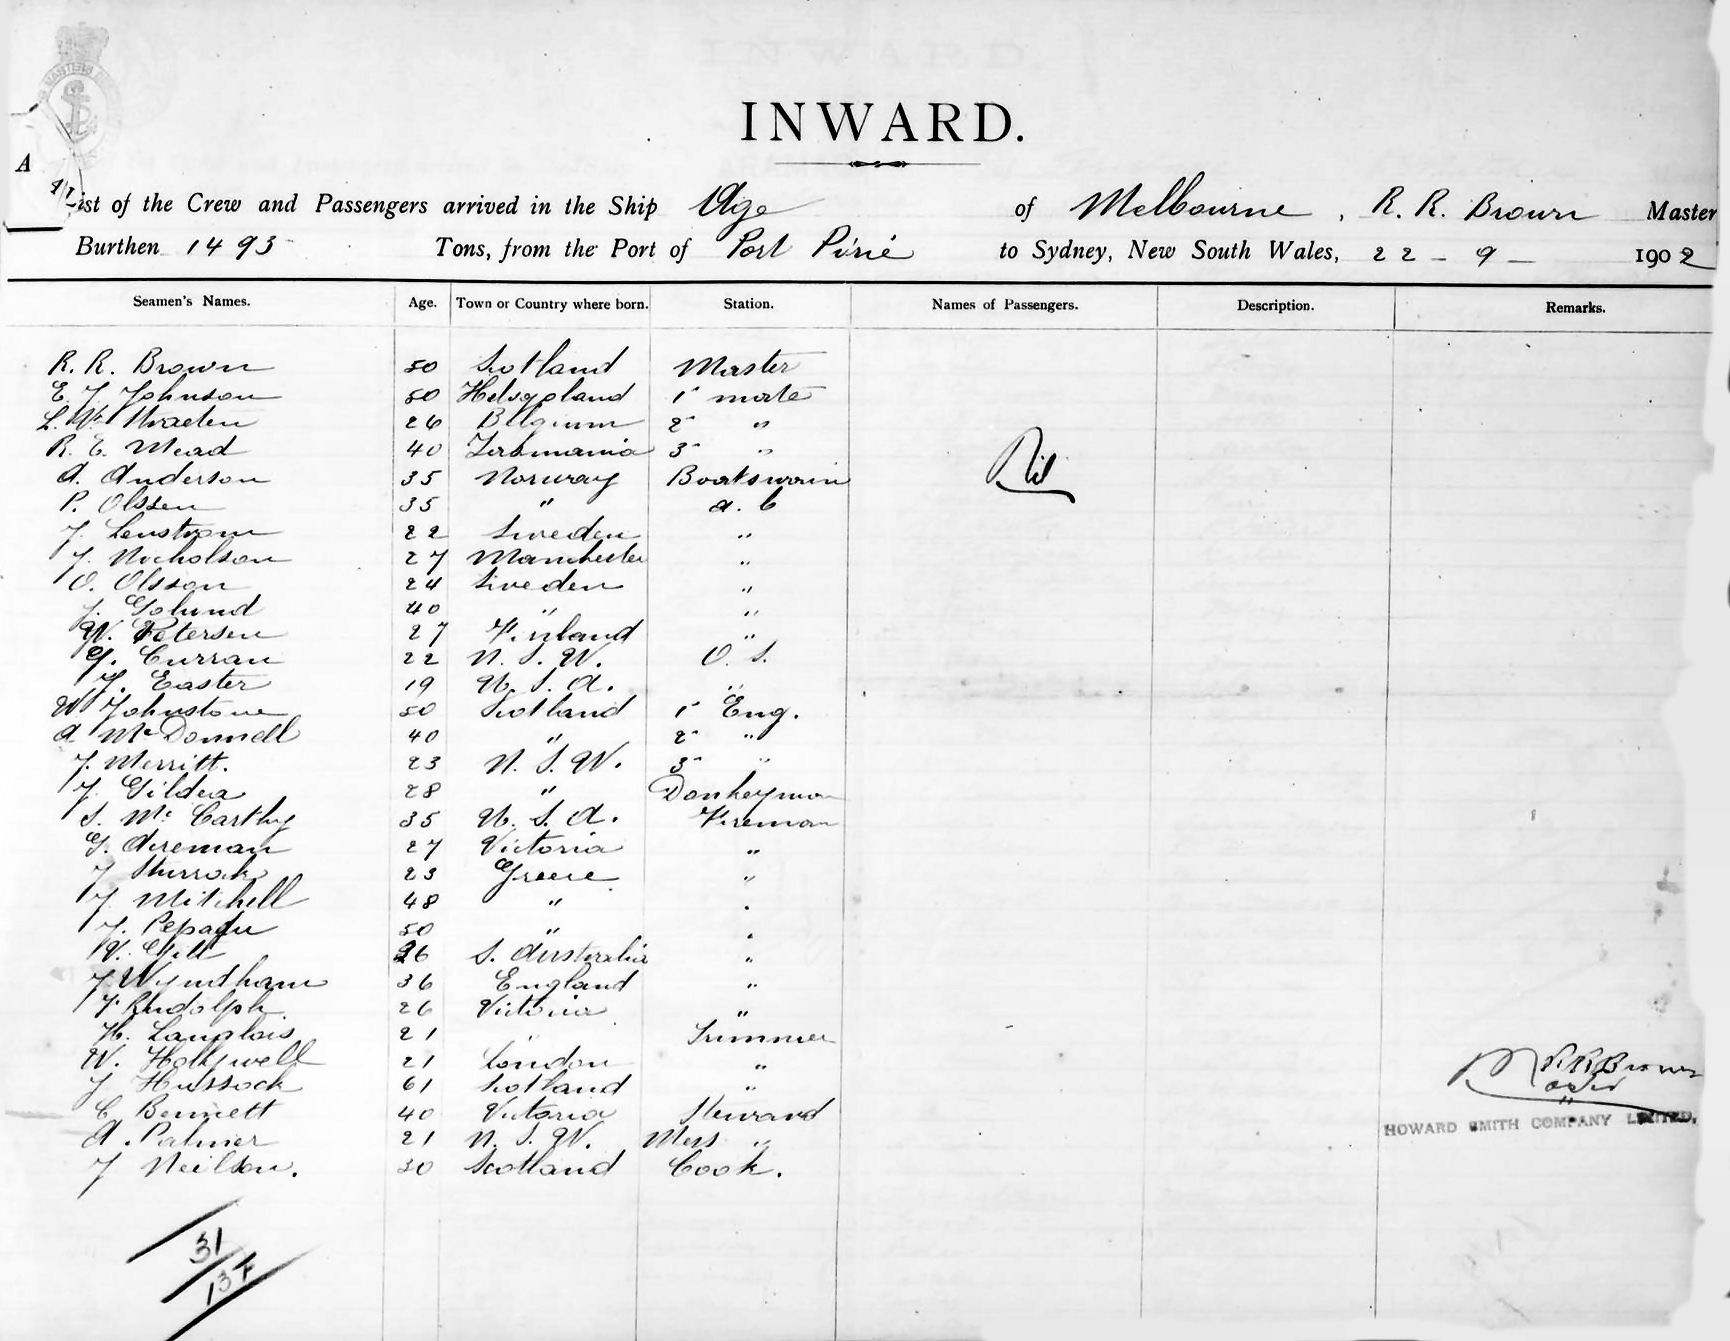 INWARD.
A
List of the Crew and Passengers arrived in the Ship Age of Melbourne, R. R. Brown Master
Burthen 1493 Tons, from the Port of Port Pirie to Sydney, New South Wales, 22 - 9 - 1902
Seamen's Names. Age. Town or Country where born. Station. Names of Passengers. Description. Remarks.
R. R. Brown 50 Scotland Master
E. J. Johnson 50 Heligoland 1" mate
L. 26 Belgium 2" "
R. E. Mead 40 Tasmania 3" "
A. Anderson 35 Norway Boatswain Nil
P. Olssen 35 " a. b
J. Lenstrom 22 Sweden "
J. Nicholson 27 Manchester "
O. Olsson 24 Sweden "
J. 40 " "
W. Petersen 27 Finland "
G. Curran 22 N. S. W. O. S.
J. Easter 19 U. S. A. "
W Johnstone 50 Scotland 1" Eng.
A McDonnell 40 " 2" "
J. Merritt. 23 N. S. W. 3" "
J. Gildea 28 " Donkeyman
S. McCarthy 35 U. S. A. Fireman
G. Aireman 27 Victoria "
J Sturrock 23 Greece "
J. Mitchell 48 " "
J. 50 " "
V. Gill 26 S. Australia "
J. Wyndham 36 England "
F Rudolph. 26 Victoria "
H. Langlois 21 " Trimmer
W. Hollywell 21 London "
J Hussock 61 Scotland "
C Bennett 40 Victoria Steward
A. Palmer 21 N. S. W. Mess "
J Neilson. 30 Scotland Cook.
R. R. Brown
HOWARD SMITH COMPANY LIMITED.
31
13 F